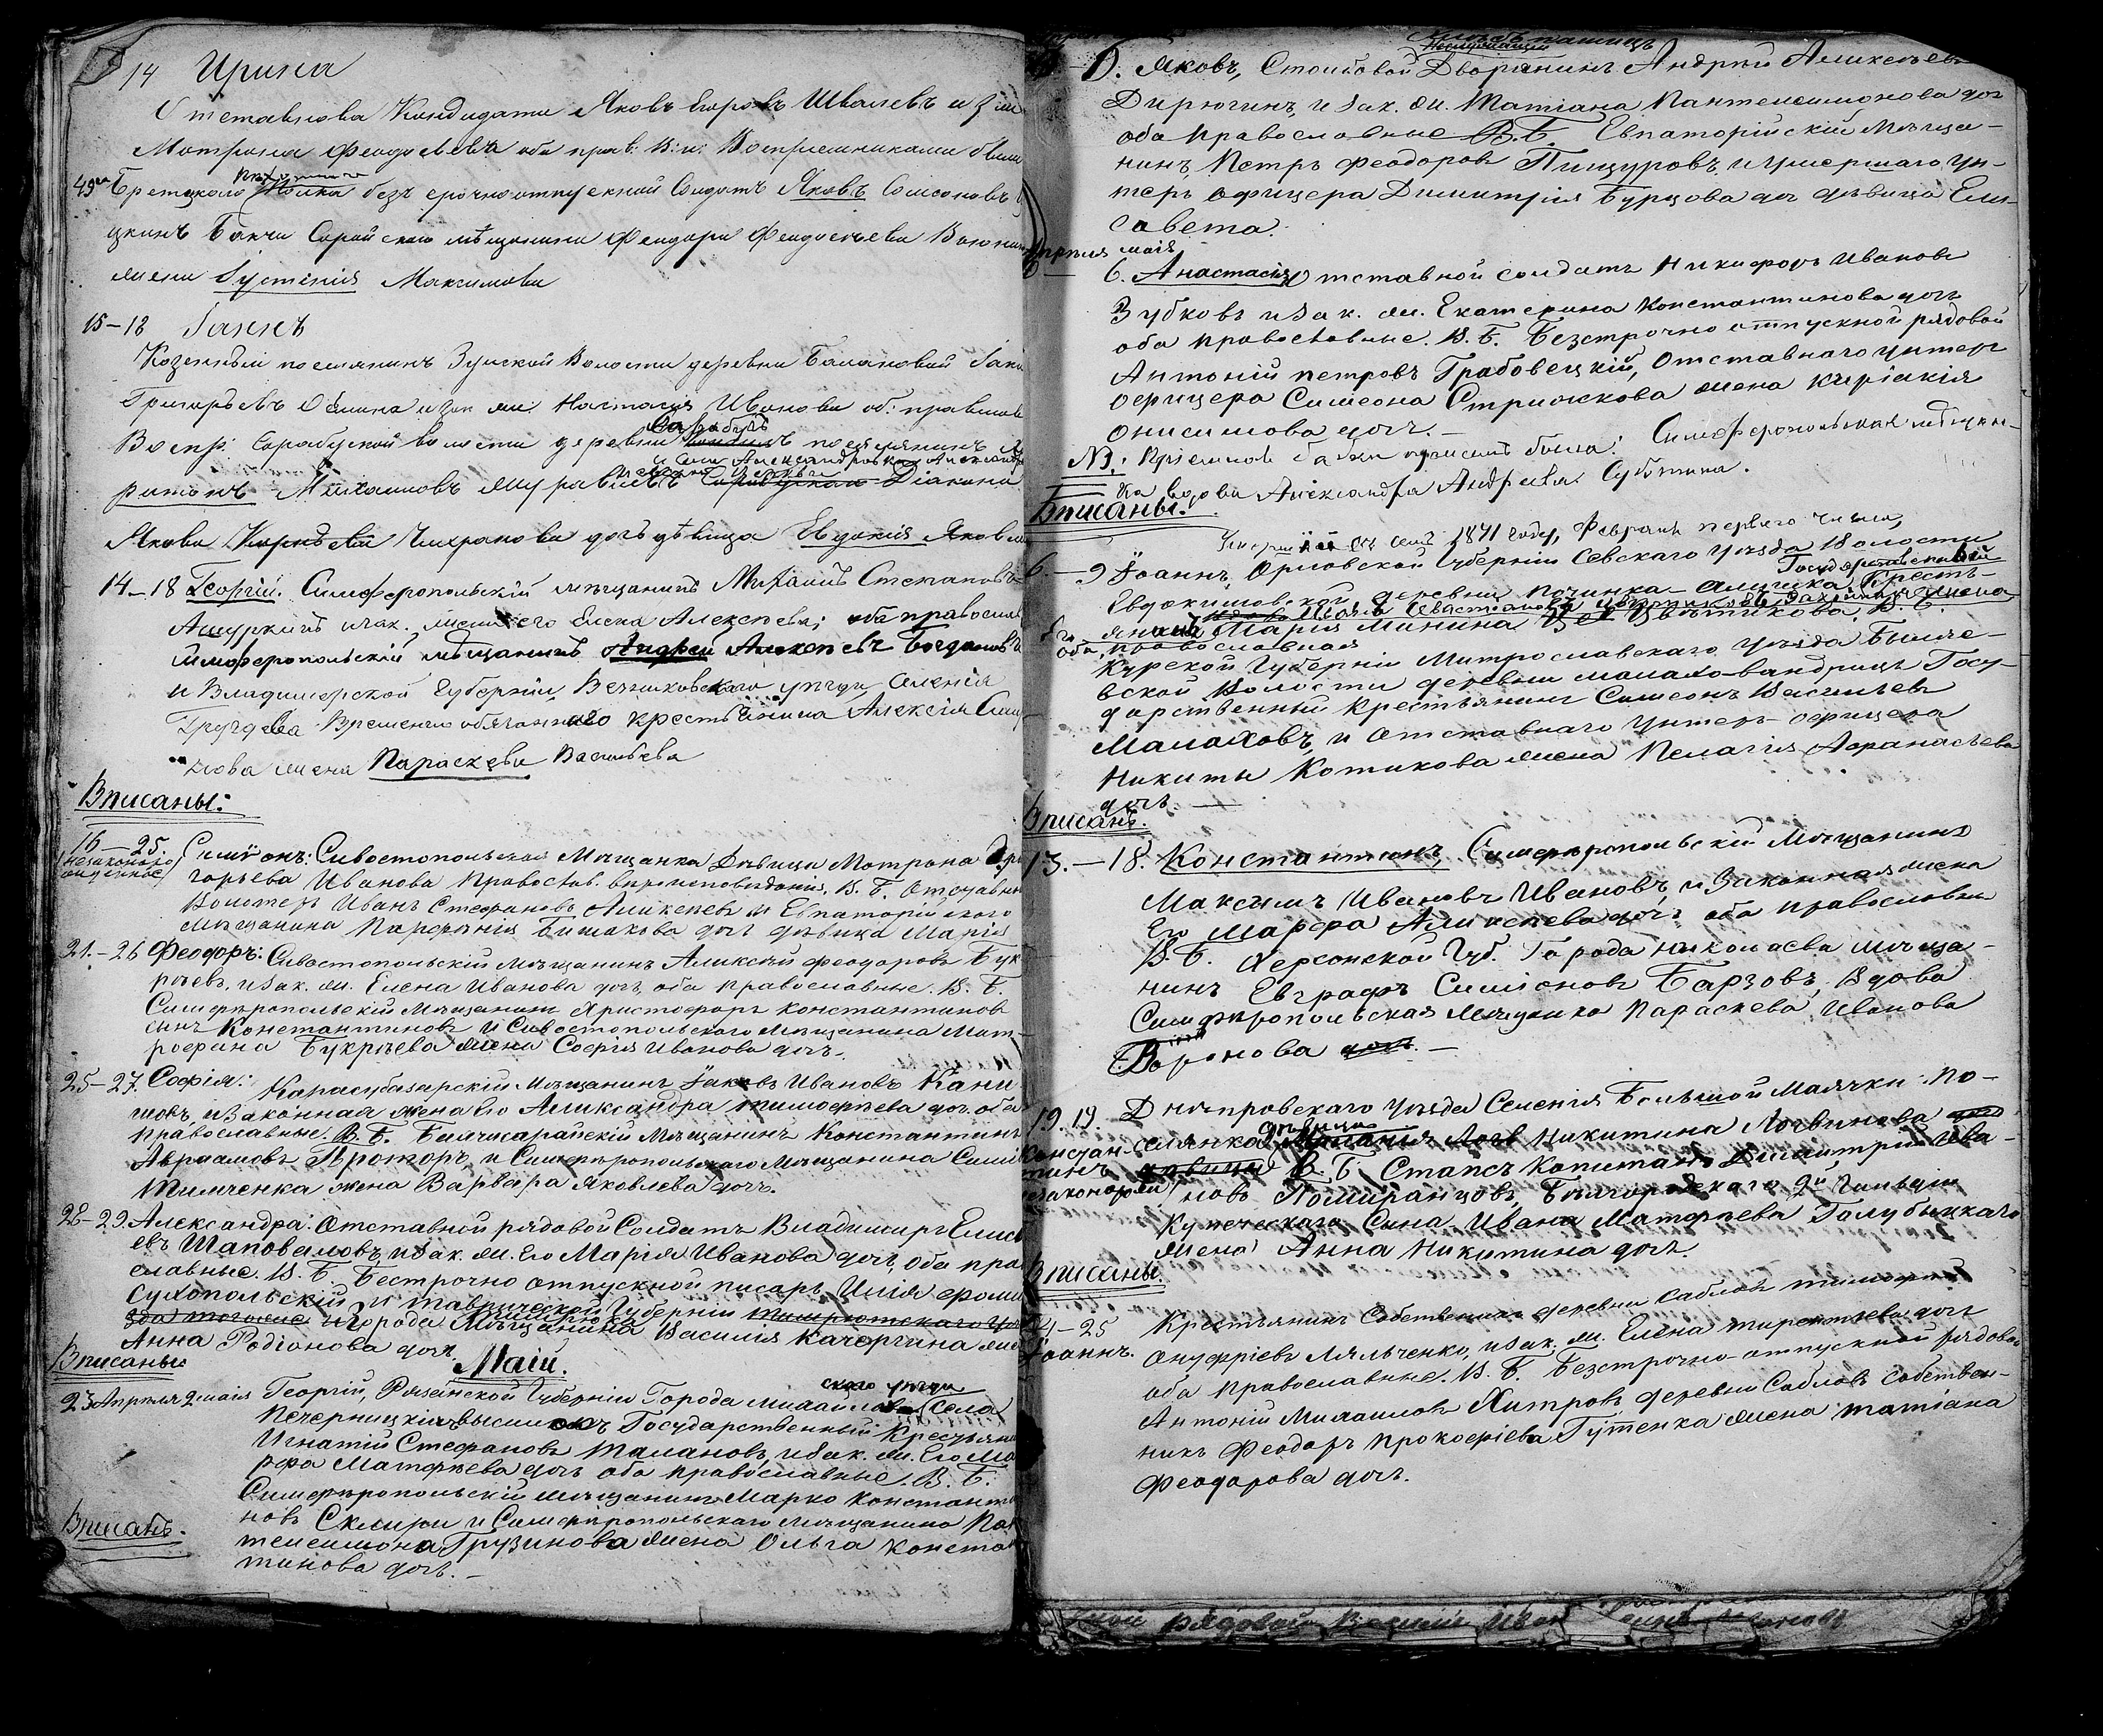 14 Ирина
Отставнова Кандидата Яковъ Егоровъ Швалевъ и З
Матрона Феодосьева оба прав: В: и: Воспріемниками были
49го Бретскаго Полка безъ срочно отпускной Солдатъ Яковъ Самсоновъ
цкинъ Бакчи Сарайскаго мѣщанина Феодора Феодосьева
жена Іустинія Максимова
15–18 Іаннъ
Козенный поселянинъ Зуйской Волости деревни Балановой Іаки
Григорьевъ и зак жи: Настасія Иванова об: правослов
Воспр: Сарабузской волости деревни Сарабузъ поселянинъ
ритонъ Михаиловъ Журавлевъ Діакона
Якова Чехранова дочь дѣвица Евдокія Яковл
14–18 Георгій. Симферопольскій мѣщанинъ Михаилъ Степановъ
Ашуркинъ и зак. жена его Елена Алексѣева; оба правосла
Симферопольскій мѣщанинъ Андрей Алексѣевъ Богдановъ
и Владимерской Губерніи, Везниковскаго уѣзда, Селенія
Груздева Временно обязаннаго крестьянина Алексія Сим
нова жена Параскева Васильева
Вписаны:
16–25. Симеонъ: Сивостопольская Мѣщанка Дѣвица Матрона Гри
(незаконорожденное) горьева Иванова Православ. вѣроисповѣданія, В. Б. Отставн
Волотеръ Иванъ Стефановъ Алексѣевъ и Евпаторійскаго
мѣщанина Парфенія Бишакова доч дѣвица Марія
21.–26 Феодоръ: Сивостопольскій Мѣщанинъ Алексѣй Феодоровъ Бук
рѣевъ, и зак. ж. Елена Иванова дочъ, оба православные. В. Б.
Симферопольскій Мѣщанинъ Христофоръ Константинов
сынъ Константиновъ и Сивостопольскаго Мѣщанина Мит-
рофана Букрѣева жена Софія Иванова дочъ.
25–27. Софія: Карасубазарскій Мѣщанинъ Іаковъ Ивановъ Кани
шовъ, и Законная жена Его Александра Тимофѣева доч. оба
православные. В. Б. Бахчисарайскій Мѣщанинъ Константинъ
Авраамовъ Проторъ, и Симферопольскаго Мѣщанина Симе
Тимченка жена Варвара Яковлева дочъ.
28–29. Александра: Отставной рядовой Солдатъ Владимиръ Елисе
евъ Шаповаловъ, и зак. ж. Его Марія Иванова дочъ, оба пра
славные. В. Б. Бестрочно отпускной писаръ Илія Фоми
Сухопольскій и Таврической Губерніи
Города Мѣщанина Василія Качергина же
Анна Родіонова доч.
Вписаны
Маій.
23 Апреля 2 маія Георгій, Рязанской Губерніи Города Михайловскаго уѣзда Села
Печерницкихъ высилокъ Государственный Крестьяни
Игнатій Стефановъ Талановъ, и зак. ж. Его Ма
рфа Матфѣева дочъ оба православные. В. Б.
Симферопольскій мѣщанинъ Марко Константи
новъ Склири и Симферопольскаго мѣщанина Пан
телеимона Грузинова жена Ольга Конста
тинова дочь.–
Вписанъ.
6. Яковъ, Столбовой Дворянинъ Андрей Алексѣевъ
Дирюгинъ, и зак. жи. Татіана Пантелеимонова доч
оба православные В. Б. Евпаторійскій Мѣща-
нинъ Петръ Феодоровъ Пищуровъ, и умершаго Ун-
теръ Офицера Димитрія Бурцова доч дѣвица Ели-
савета.
Апреля маія
6. Анастасія Отставной солдатъ Никифоръ Иванов
Зубковъ и зак. жи. Екатерина Константинова дочъ
оба православные. В. Б. Безстрочно отпускной рядовой
Антоній Петровъ Грабовецкій, Отставнаго Унтер
офицера Симеона Стрижкова жена Киріакія
Онисимова доч.–
NB: Пріемной бабки была: Симферопольская мѣщан-
ка вдова Александра Андреева Субътина.
Вписаны.
1871 году, Февраля перваго числа,
6.–9 Іоаннъ, Орловской Губерніи Севскаго Уѣзда Волости
Евдокимовской, деревни Починка-Алешка Государственный Кресть-
янинъ
Марія Минина Цвѣткова. В. Б.
оба православная
Курской Губерніи Митрославскаго Уѣзда Быше-
вской Волости деревни Малахо-вандрицъ Госу-
дарственный Крестьянинъ Симеонъ Васильевъ
Малаховъ, и Отставнаго Унтеръ-офицера
Никиты Котикова жена Пелагія Афанасьева
дочъ. —
Вписанъ.
13.–18. Константинъ, Симферопольскій Мѣщанинъ
Максимъ Ивановъ Ивановъ, и Законная жена
Его Марфа Алексѣева дочъ оба православны
В. Б. Херсонской Губ. Города Николаева Мѣща-
нинъ Евграфъ Симіоновъ Барзовъ, Вдова
Симферопольская Мѣщанка Параскева Иванова
Воронова дочъ.–
19.19. Днѣпровскаго Уѣзда Селенія Большой Маячки По-
Констан- селянка дѣвица Никитина Логвинова
тинъ В. Б. Стапсъ Копитанъ Димитрій Ива-
незаконорож новъ Помѣранцовъ, Бѣлгородскаго 2й Гильдіи
Купеческаго Сына Ивана Матфѣева Голубицкаго
жена Анна Никитина дочъ.
Вписаны.
24–25 Крестьянинъ Собственникъ деревни Саблов Тимофей
Іоаннъ. Онуфріевъ Ляльченко, и зак. ж. Елена Тирентьева дочъ
оба православные. В. Б. Безстрочно-отпускной рядово
Антоній Михаиловъ Хитровъ, деревни Саблов собствен-
никъ Феодоръ Прокофіева Гутенка жена Татіана
Феодорова дочъ.
рядовой Василій Иван